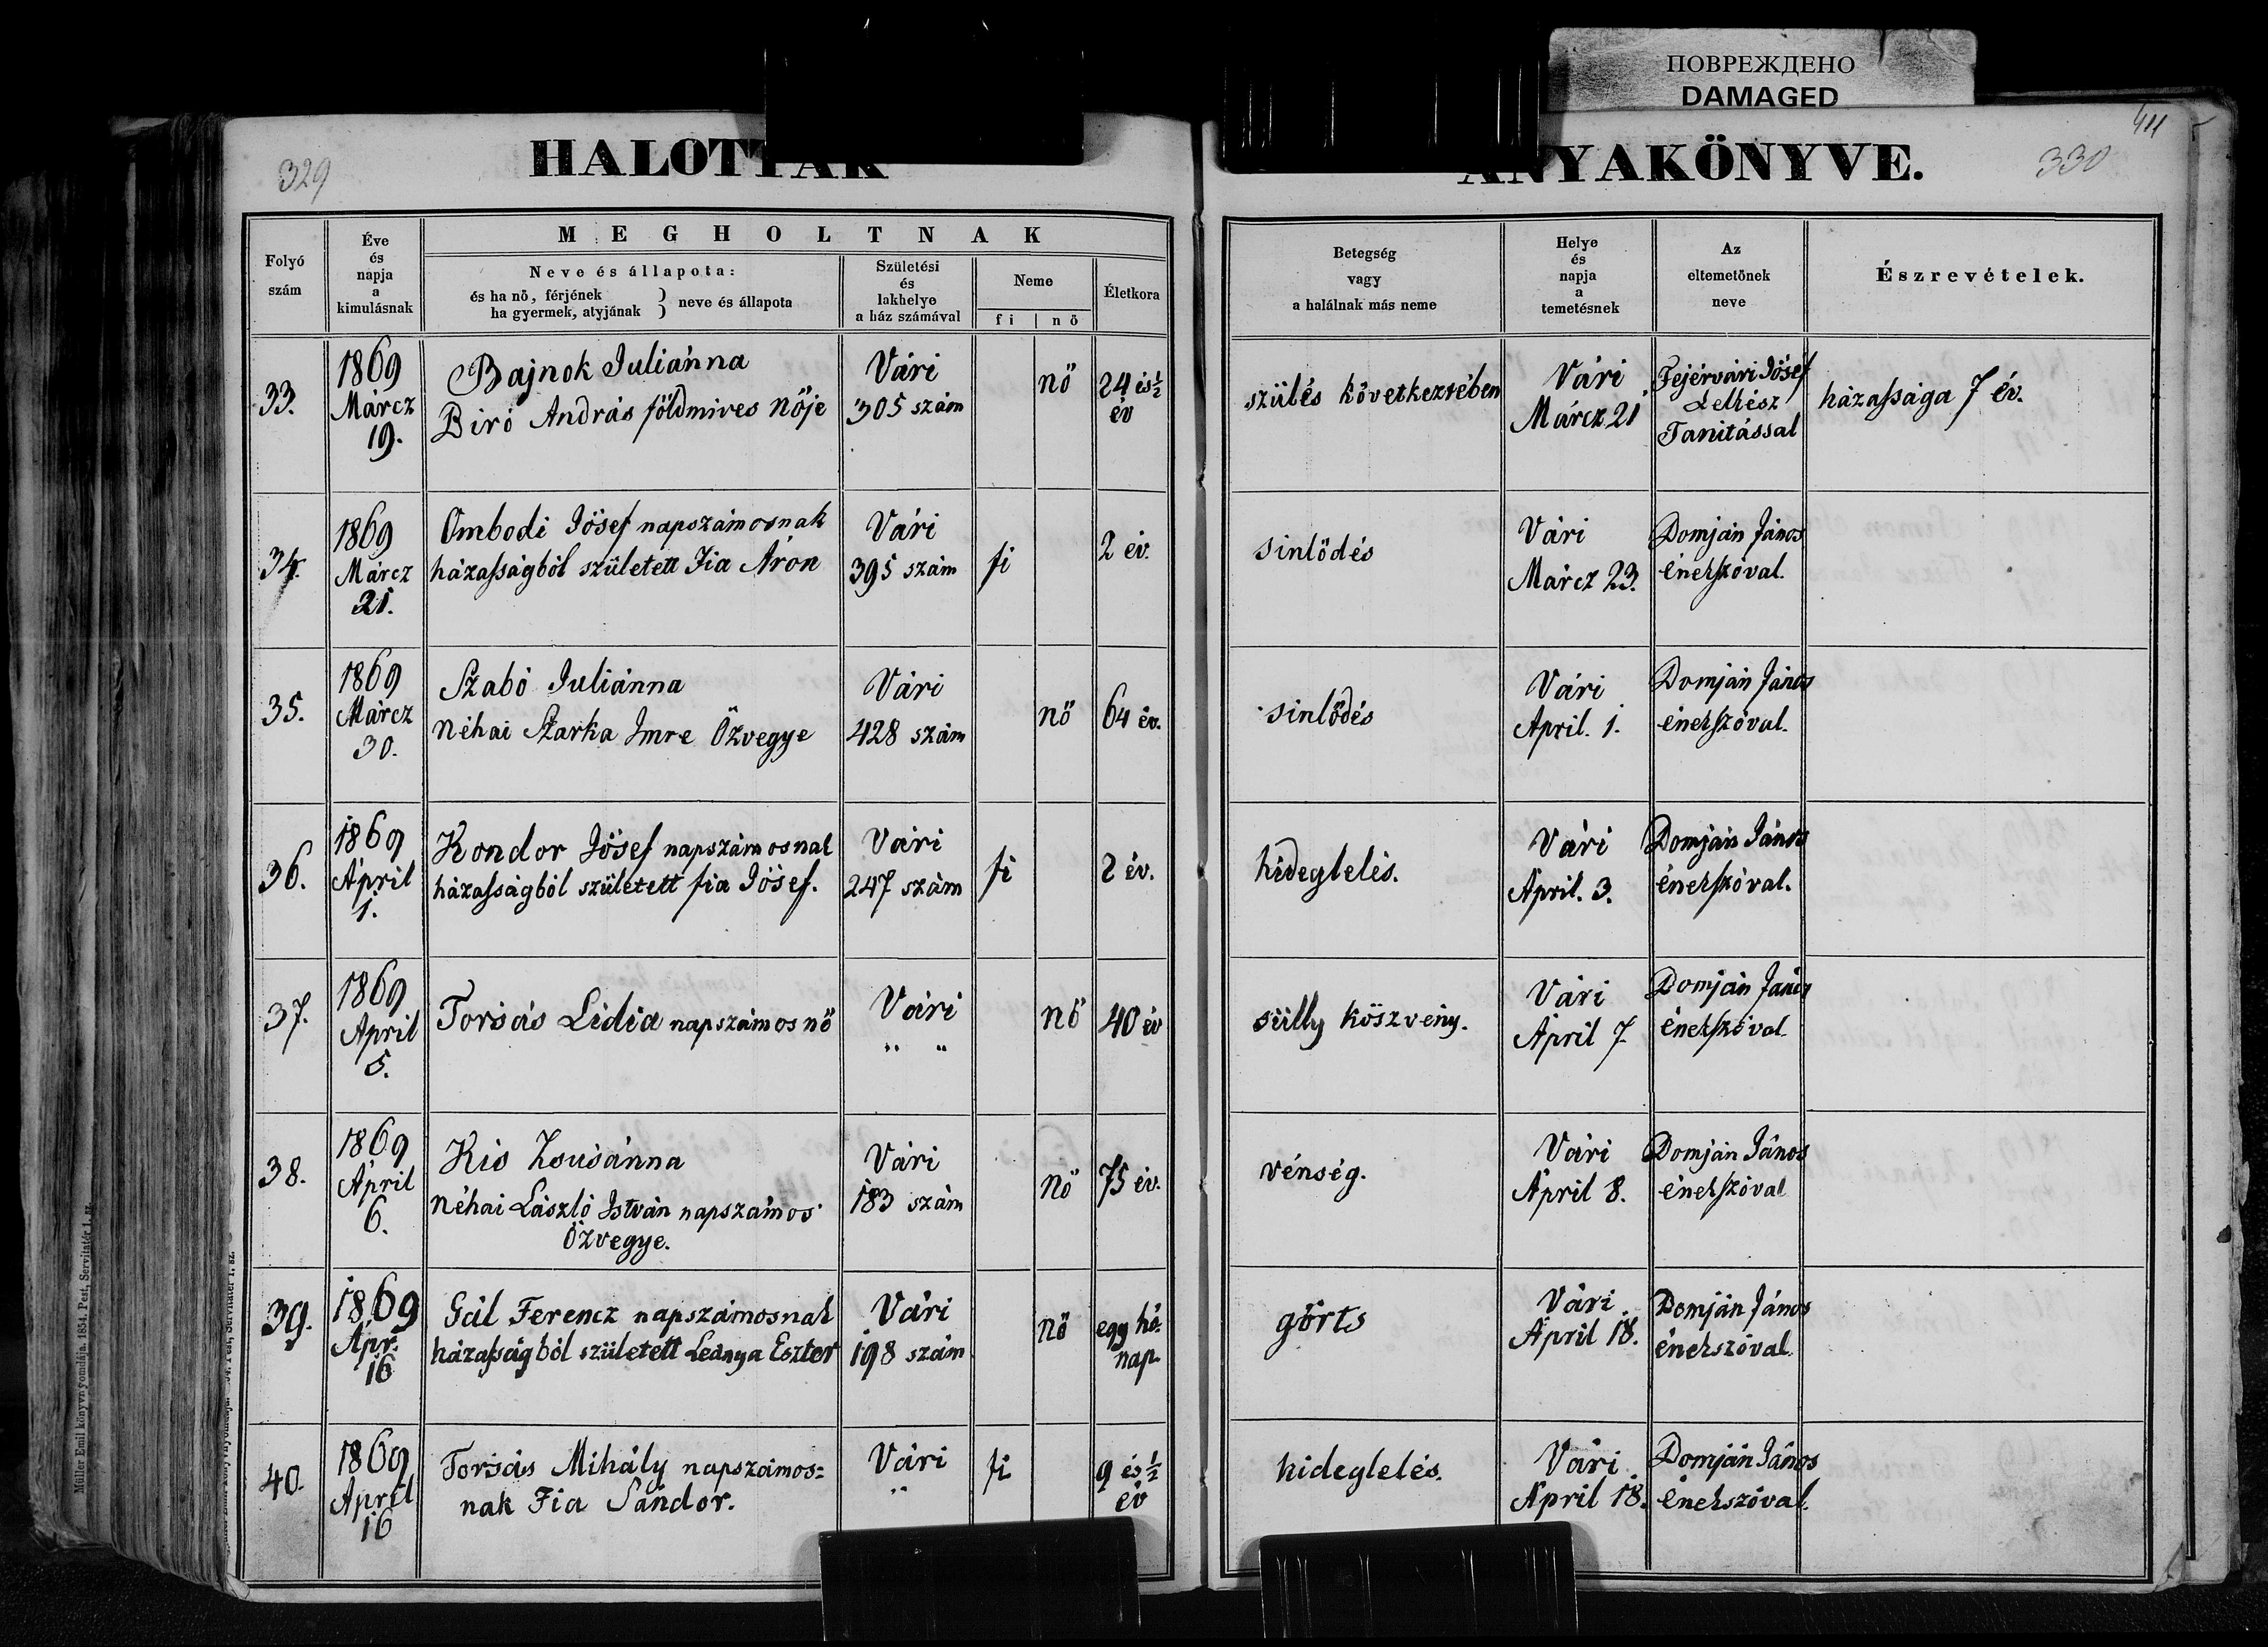 ПОВРЕЖДЕНО
DAMAGED
411
329
HALOTTAK
ANYAKÖNYVE.
330
Folyó
szám
Éve
és
napja
a
kimulásnak
MEGHOLTNAK
Neve és állapota:
és ha nö, férjének
ha gyermek, atyjának } neve és állapota
Születési
és
lakhelye
a ház számával
Neme
fi | nö
Életkora
Betegség
vagy
a halálnak más neme
Helye
és
napja
a
temetésnek
Az
eltemetönek
neve
Észrevételek.
33.
1869
Márcz
19.
Bajnok Juliánna
Biró András földmives nője
Vári
305 szám
nő
24 és ½
év
szülés következtében
Vári
Márcz 21
Fejérvári Jósef
Lelkész
Tanitással
házassága 7 év.
34.
1869
Márcz
21.
Ombodi Jósef napszámosnak
házasságból született Fia Áron
Vári
395 szám
fi
2 év.
sinlődés
Vári
Márcz 23.
Domján János
énekszóval.
35.
1869
Márcz
30.
Szabó Juliánna
Néhai Szarka Imre Özvegye
Vári
428 szám
nő
64 év.
sinlődés
Vári
April. 1.
Domján János
énekszóval.
36.
1869
Ápril
1.
Kondor Jósef napszámosnak
házasságból született fia Jósef.
Vári
247 szám
fi
2 év.
hideglelés.
Vári
April. 3.
Domján János
énekszóval.
37.
1869
April
5.
Torsás Lidia napszámos nő
Vári
" "
nő
40 év
sülly köszvény.
Vári
Ápril 7.
Domján János
énekszóval
38.
1869
Ápril
6.
Kis Zsusánna
Néhai László István napszámos
Özvegye.
Vári
183 szám
nő
75 év.
vénség.
Vári
Ápril 8.
Domján János
énekszóval
39.
1869
Ápr.
16
Gál Ferencz napszámosnak
házasságból született Leánya Eszter
Vári
198 szám
nő
egy hó-
nap.
görts
Vári
Ápril 18.
Domján János
énekszóval.
40.
1869
April
16
Torsás Mihály napszámos=
nak Fia Sándor.
Vári
"
fi
9 és ½
év
hideglelés.
Vári
Ápril 18.
Domján János
énekszóval.
Müller Emil könyvnyomdája. 1854. Pest, Servitatér 1. sz.